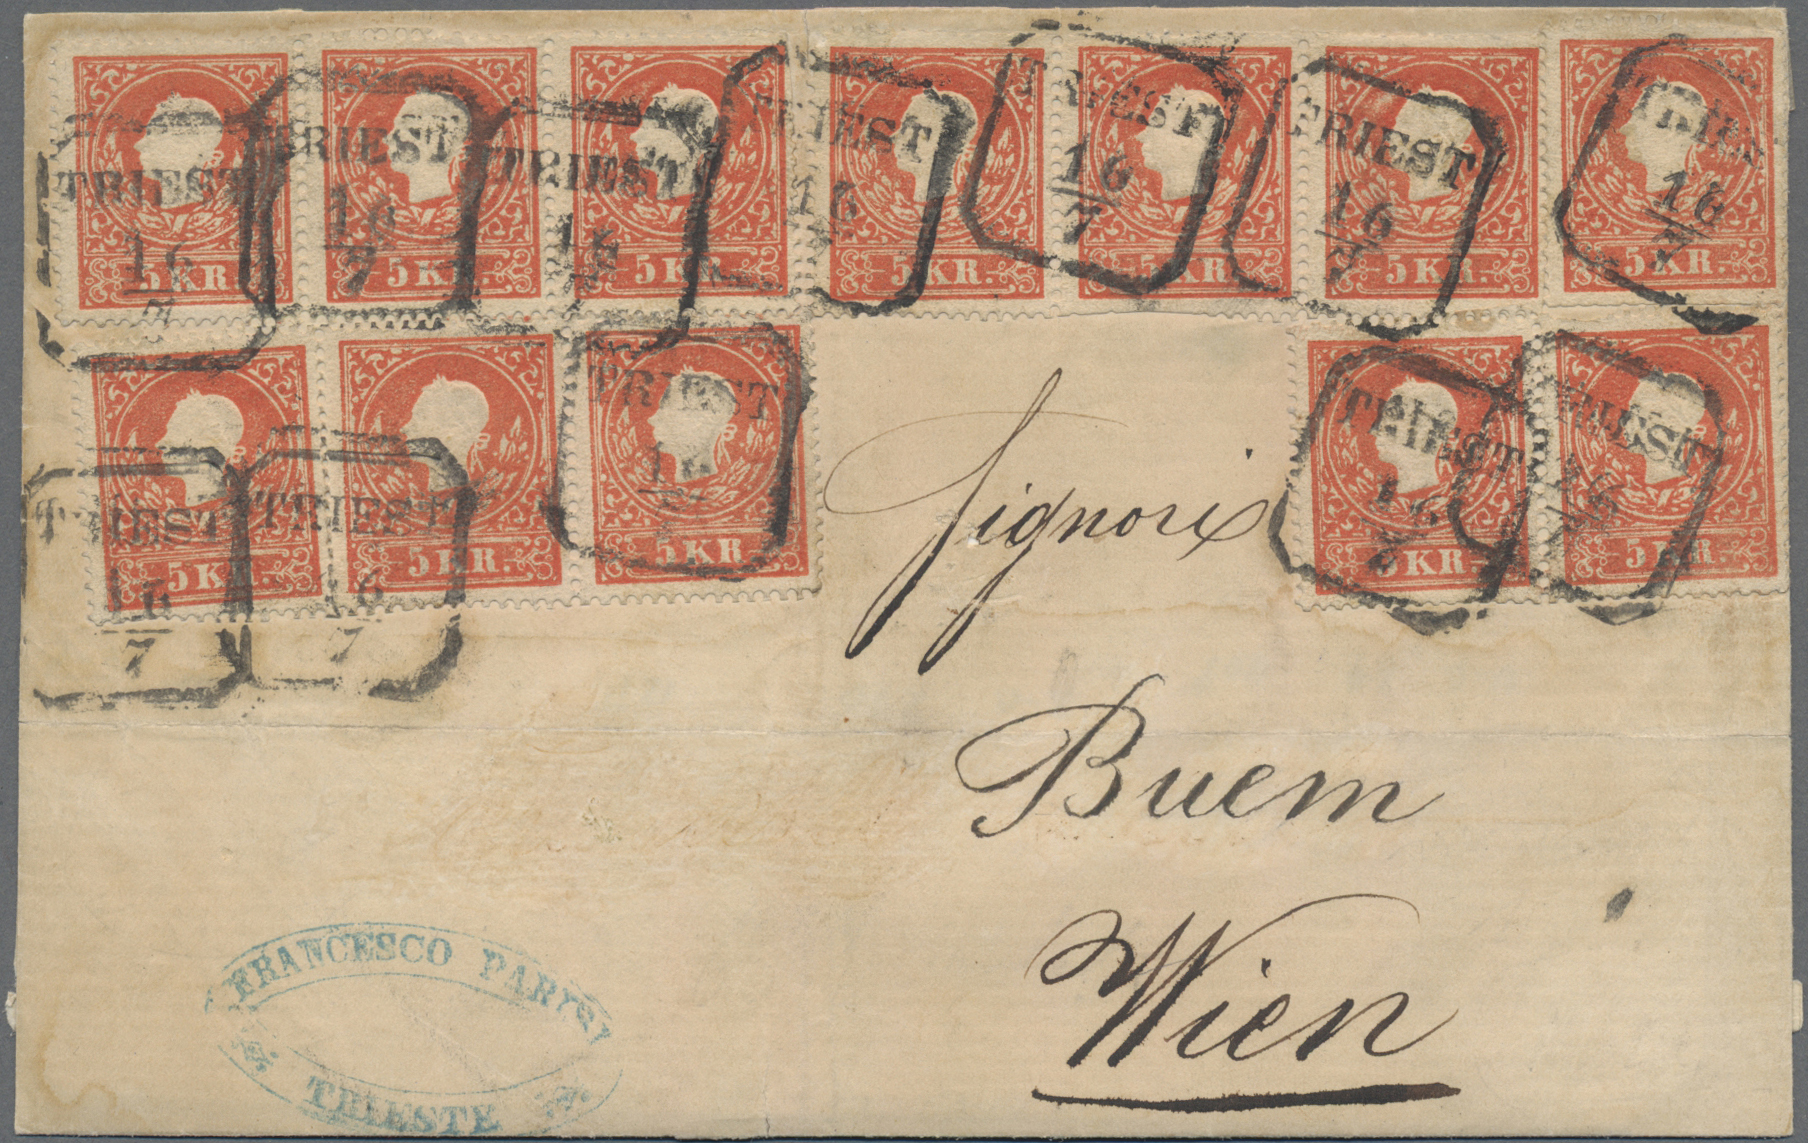 TRIEST 16/7
TRIEST 16/7
TRIEST 16/7
TRIEST 16
TRIEST 16/7
TRIEST 16/7
16/7
5 KR. 5 KR. 5 KR. 5 KR. 5 KR. 5 KR. 5 KR.
TRIEST 16/7
TRIEST 16/7
TRIEST
TRIEST 16/7
TRIEST 16
5 KR. 5 KR. 5 KR. 5 KR. 5 KR.
Signori
Buem
Wien
FRANCESCO PARISI
TRIESTE